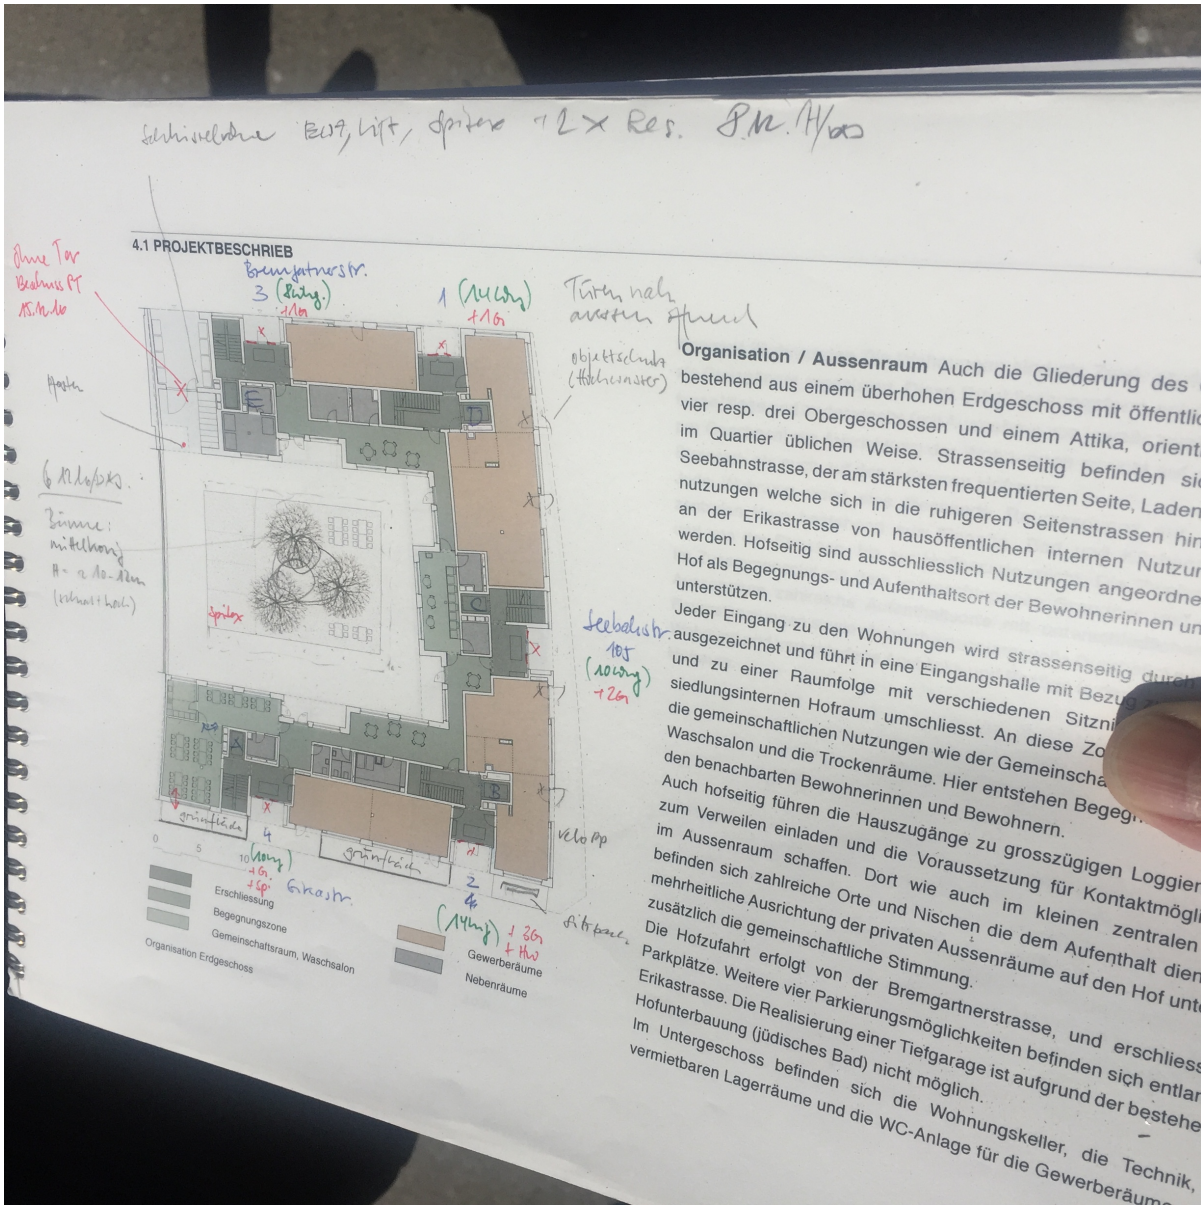 + 2 x Res.
4.1 PROJEKTBESCHRIEB
ohne Tor
Bremgartnerstr.
3
+1G
1 (14 Whg)
+1G
Türen nach
aussen
Objektschutz
E
D
C
A
B
Bäume:
Spitex
Seebahnstr.
105
(10 Whg)
+2G
grünfläche
grünfläche
Velo PP
0 5 10
4
+G
+Sp.
Erikastr.
2
(14 Whg) + 3G
+ HW
Erschliessung
Begegnungszone
Gemeinschaftsraum, Waschsalon
Organisation Erdgeschoss
Gewerberäume
Nebenräume
Organisation / Aussenraum Auch die Gliederung des
bestehend aus einem überhohen Erdgeschoss mit öffentlic
vier resp. drei Obergeschossen und einem Attika, orient
im Quartier üblichen Weise. Strassenseitig befinden sic
Seebahnstrasse, der am stärksten frequentierten Seite, Laden
nutzungen welche sich in die ruhigeren Seitenstrassen hin
an der Erikastrasse von hausöffentlichen internen Nutzun
werden. Hofseitig sind ausschliesslich Nutzungen angeordne
Hof als Begegnungs- und Aufenthaltsort der Bewohnerinnen un
unterstützen.
Jeder Eingang zu den Wohnungen wird strassenseitig durch
ausgezeichnet und führt in eine Eingangshalle mit Bezug
und zu einer Raumfolge mit verschiedenen Sitzni
siedlungsinternen Hofraum umschliesst. An diese Zo
die gemeinschaftlichen Nutzungen wie der Gemeinscha
Waschsalon und die Trockenräume. Hier entstehen Begegn
den benachbarten Bewohnerinnen und Bewohnern.
Auch hofseitig führen die Hauszugänge zu grosszügigen Loggien
zum Verweilen einladen und die Voraussetzung für Kontaktmögli
im Aussenraum schaffen. Dort wie auch im kleinen zentralen
befinden sich zahlreiche Orte und Nischen die dem Aufenthalt dien
mehrheitliche Ausrichtung der privaten Aussenräume auf den Hof unte
zusätzlich die gemeinschaftliche Stimmung.
Die Hofzufahrt erfolgt von der Bremgartnerstrasse, und erschliess
Parkplätze. Weitere vier Parkierungsmöglichkeiten befinden sich entlan
Erikastrasse. Die Realisierung einer Tiefgarage ist aufgrund der bestehe
Hofunterbauung (jüdisches Bad) nicht möglich.
Im Untergeschoss befinden sich die Wohnungskeller, die Technik,
vermietbaren Lagerräume und die WC-Anlage für die Gewerberäum